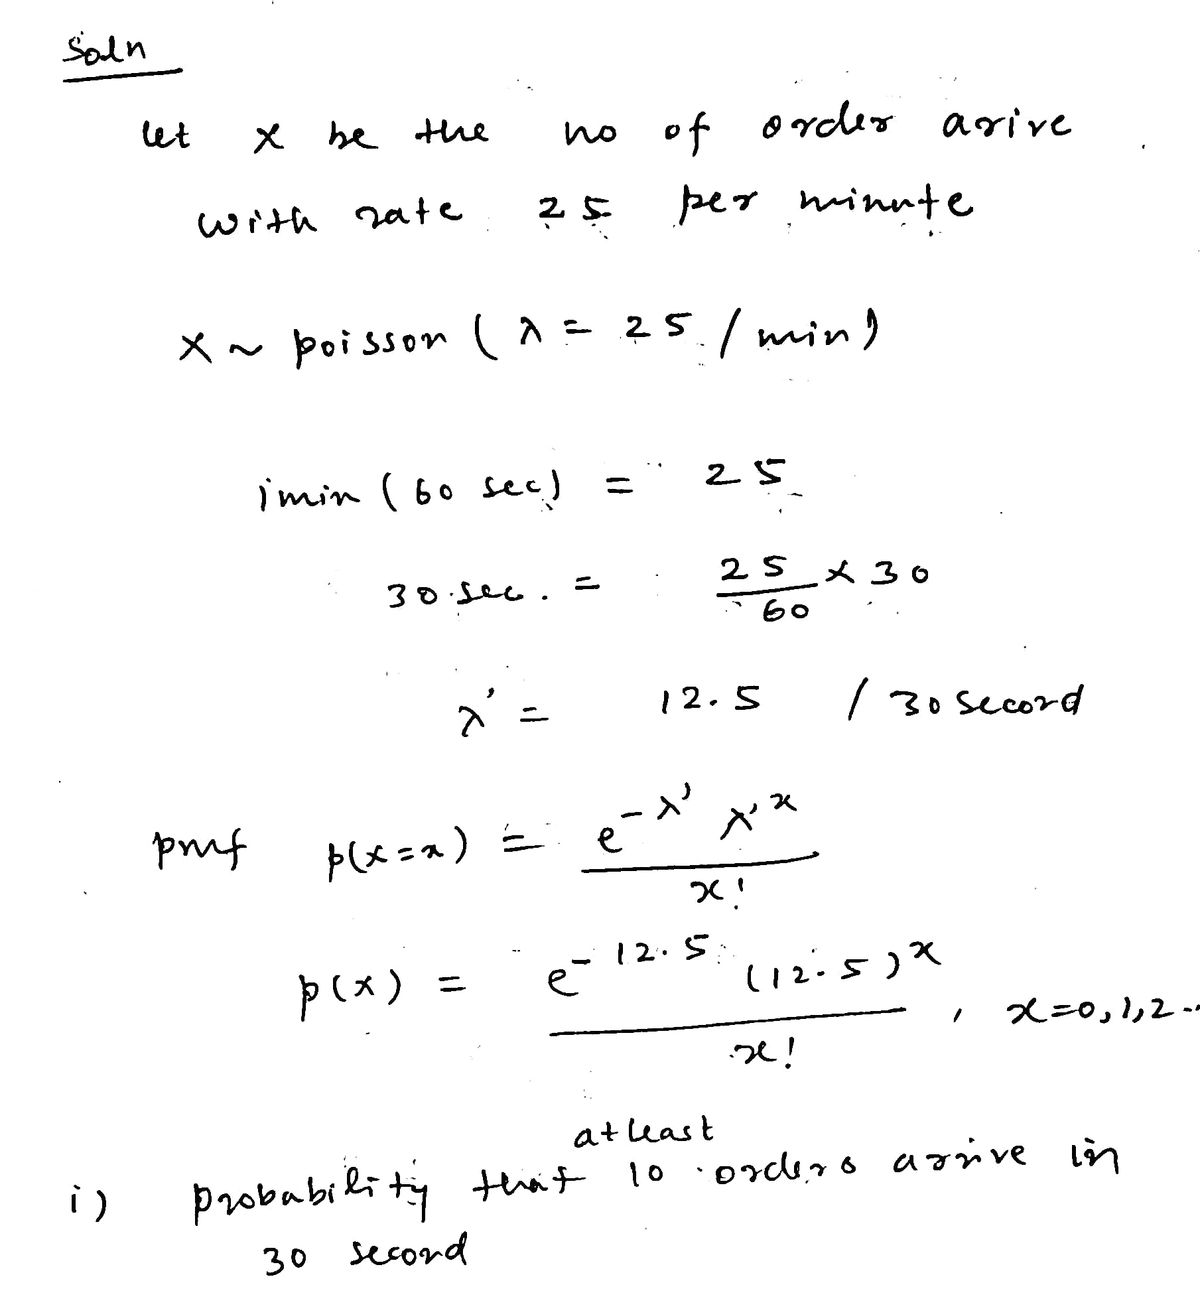 Soln
let x be the no of order arive
with rate 25 per minute
X ~ poisson ( λ = 25 / min)
1min ( 60 sec) = 25
30 sec. = 25/60 × 30
λ' = 12.5 / 30 second
pmf p(x=x) = e^-λ' λ'^x / x!
p(x) = e^-12.5 (12.5)^x / x! , x=0,1,2..
atleast
i) probability that 10 orders arrive in
30 second